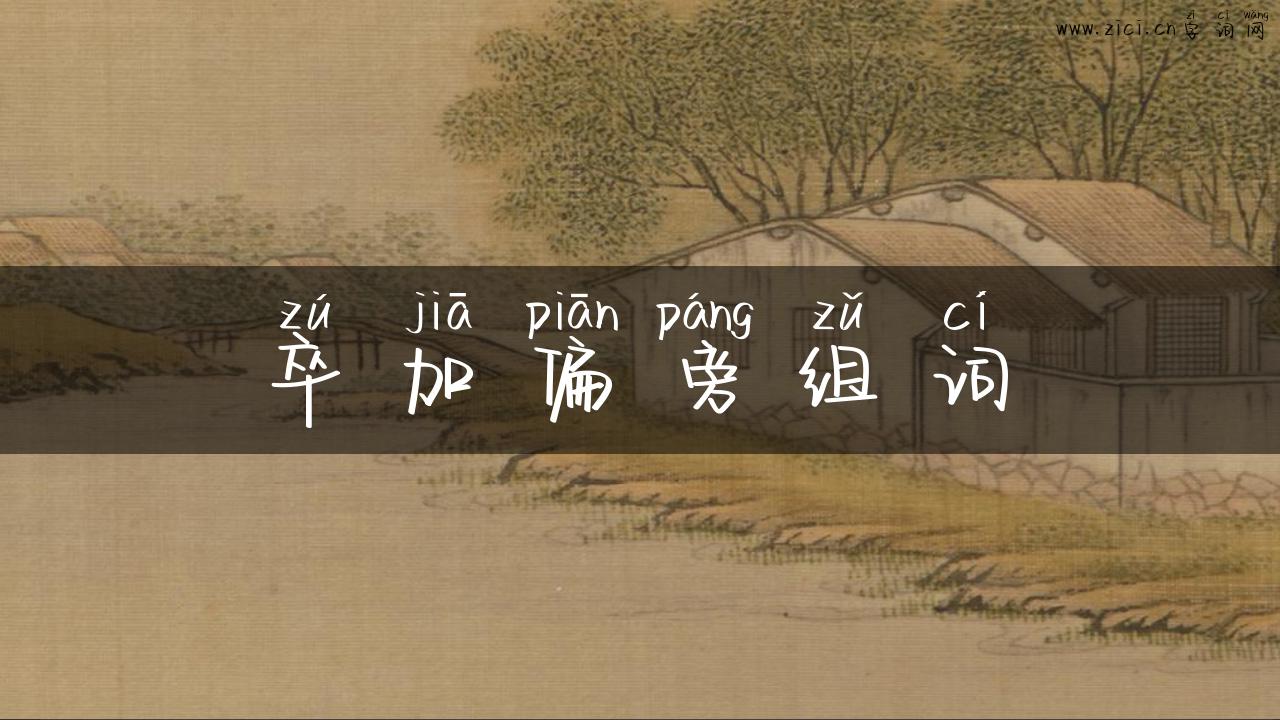 zì cí wǎng
www.zici.cn字词网
zú jiā piān páng zǔ cí
卒加偏旁组词